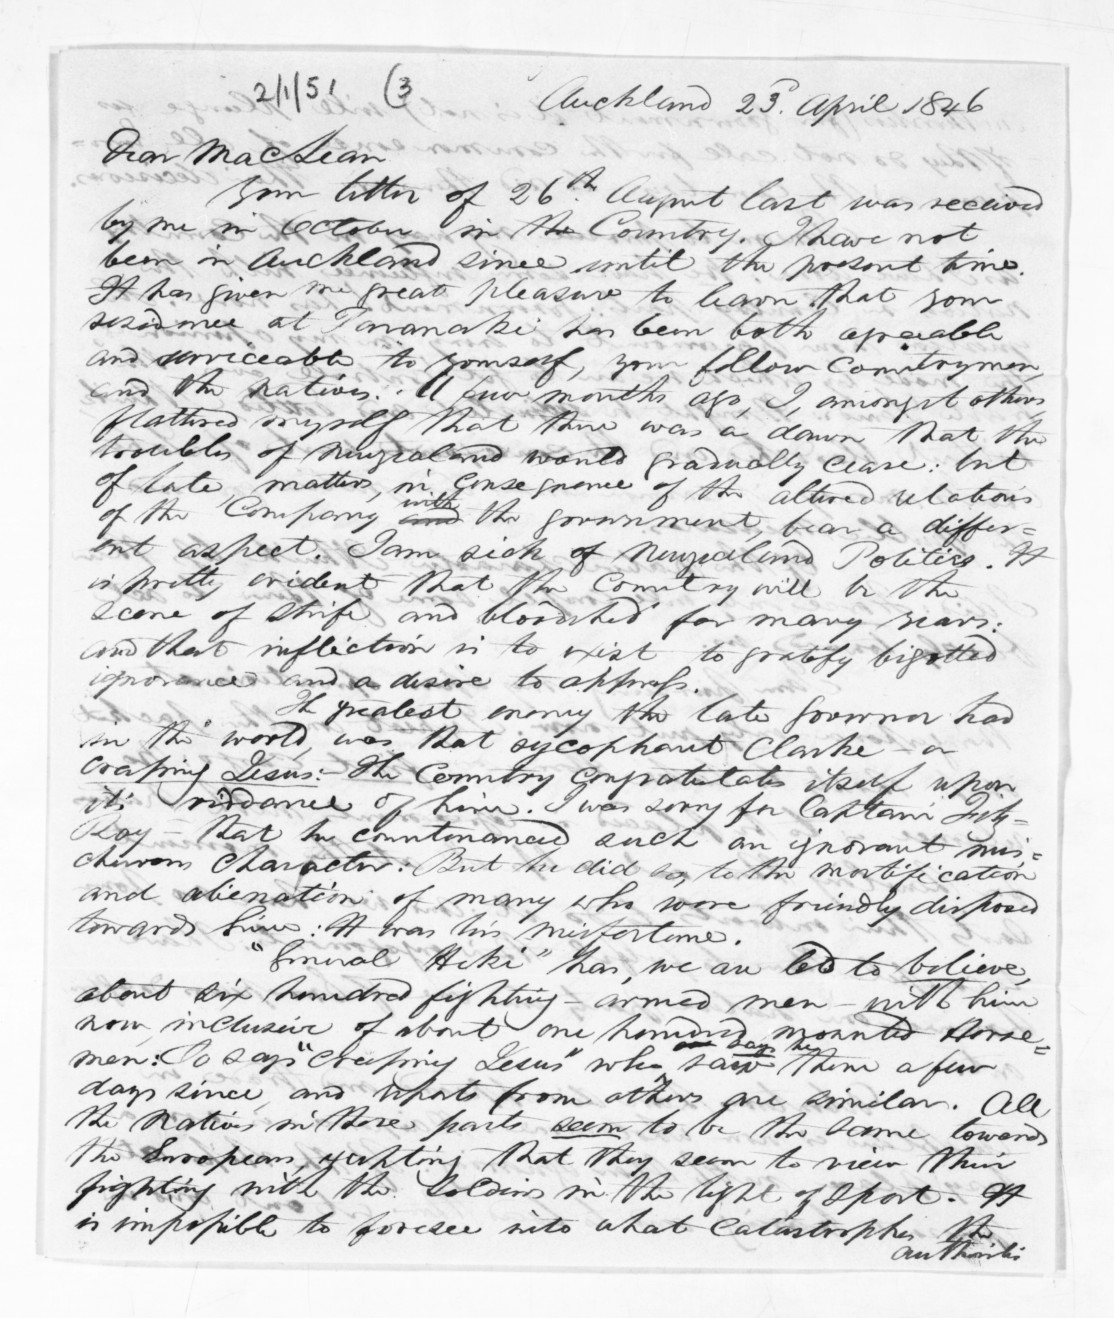 2/1/51 (3
Auckland 23d. April 1846
Dear MacLean
Your letter of 26th. August last was received
by me in October in the Country. I have not
been in Auckland since until the present time.
It has given me great pleasure to learn that your
residence at Taranaki has been both agreeable
and serviceable to yourself, your fellow Countrymen,
and the Natives. A few months ago, I, amongst others,
flattered myself that there was a dawn that the
troubles of Newzealand would gradually cease: but
of late, matters, in consequence of the altered relations
of the Company and with the government, bear a differ=
ent aspect. I am sick of Newzealand Politics. It
is pretty evident that the Country will be the
scene of strife and bloodshed for many years:
and that infliction is to exist to gratify bigotted
ignorance and a desire to oppress.
The greatest enemy the late Governor had
in the world, was that sycophant Clarke – a
creeping Jesus: The Country congratulates itself upon
its riddance of him. I was sorry for Captain Fitz=
Roy – that he countenanced such an ignorant mis=
chievous character: But he did so, to the mortification
and alienation of many who were friendly disposed
towards him: It was his misfortune.
"General Heki" has, we are led to believe,
about six hundred fighting – armed men – with him
now, inclusive of about one hundred mounted Horse=
men: So says "Creeping Jesus" who, says he saw them a few
days since, and reports from others are similar. All
the Natives in those parts seem to be the same towards
the Europeans, excepting that they seem to view their
fighting with the Soldiers in the light of Sport. It
is impossible to foresee into what Catastrophes the
authorities